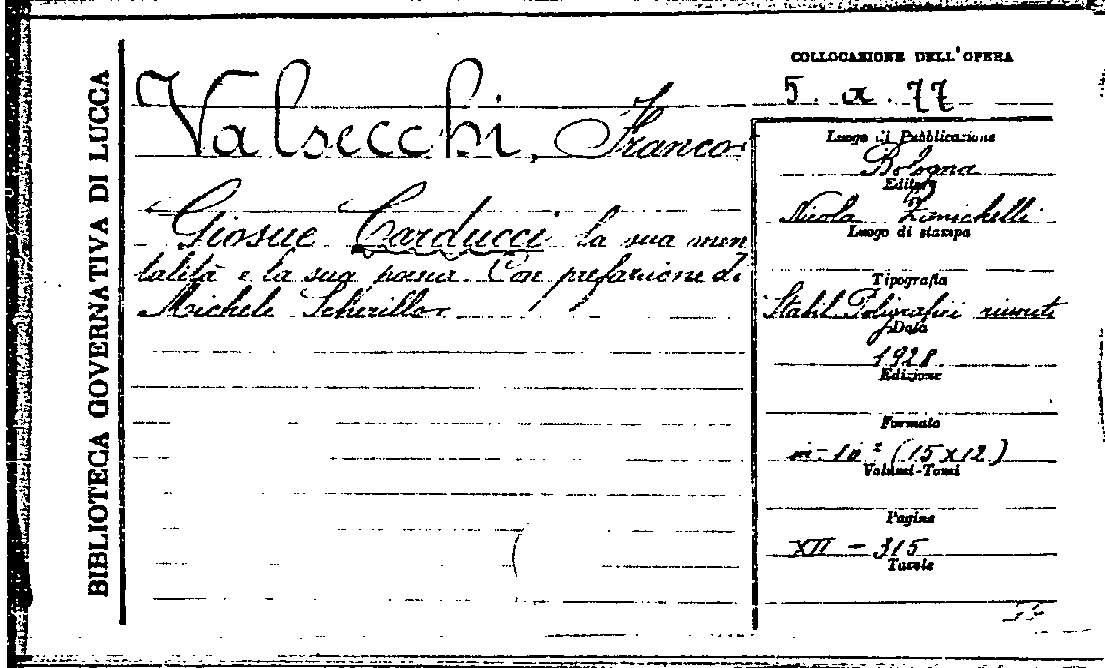 BIBLIOTECA GOVERNATIVA DI LUCCA
Valsecchi, Franco
Giosue Carducci la sua men
talità e la sua poesia. Con prefazione di
Michele Scherillo
COLLOCAZIONE DELL'OPERA
5. a. 77
Luogo di Pubblicazione
Bologna
Editore
Nicola Zanichelli
Luogo di stampa
Tipografia
Stabil. Poligrafici riuniti
Data
1928
Edizione
Formato
in-16° (15x12)
Volumi-Tomi
Pagine
XII - 315
Tavole